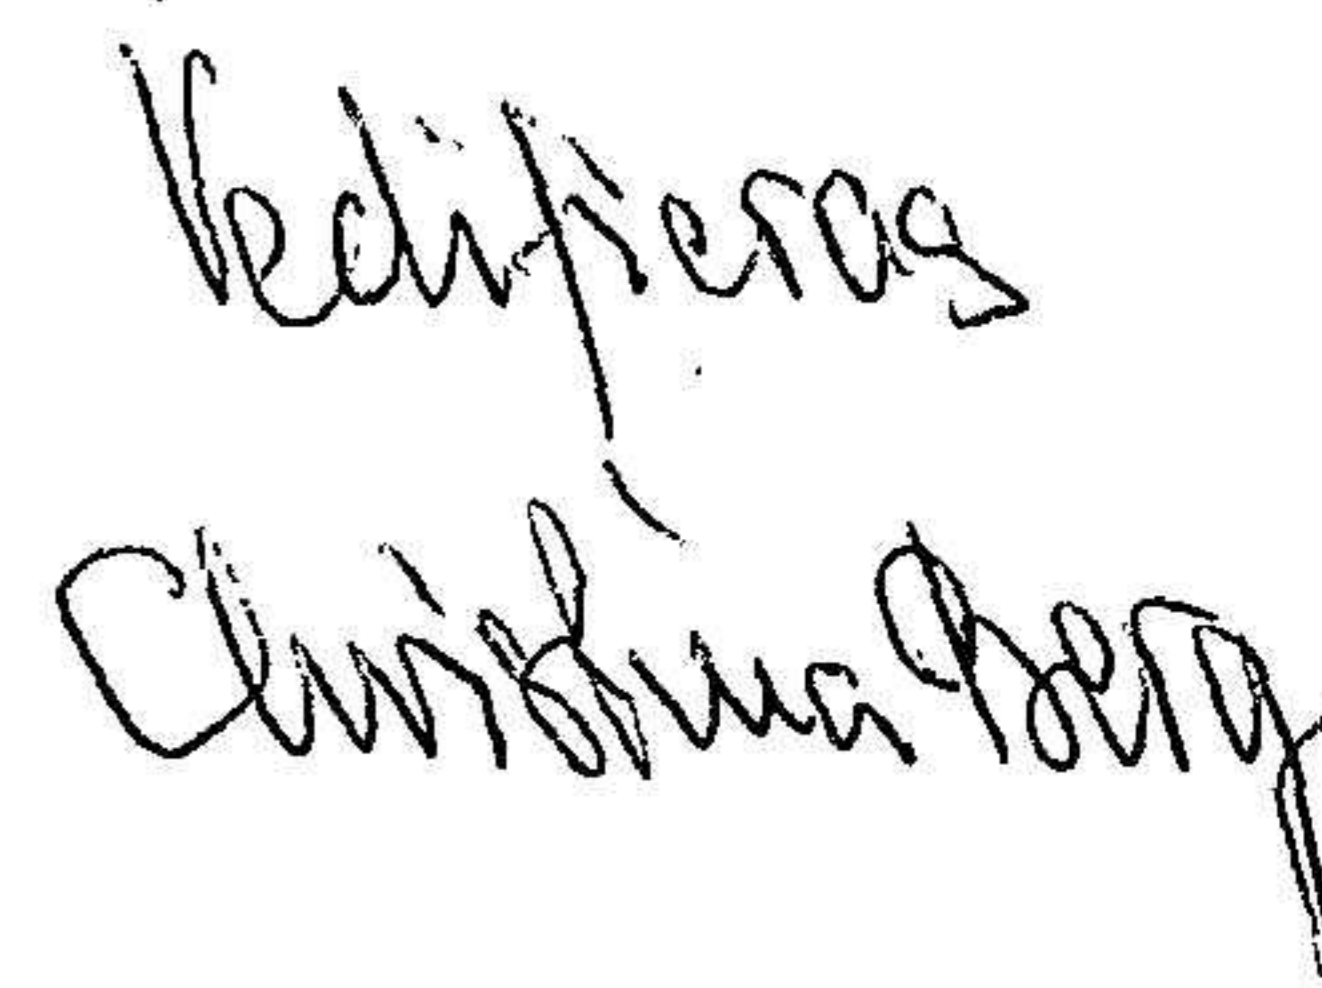 Vedifieras
Christina Berg